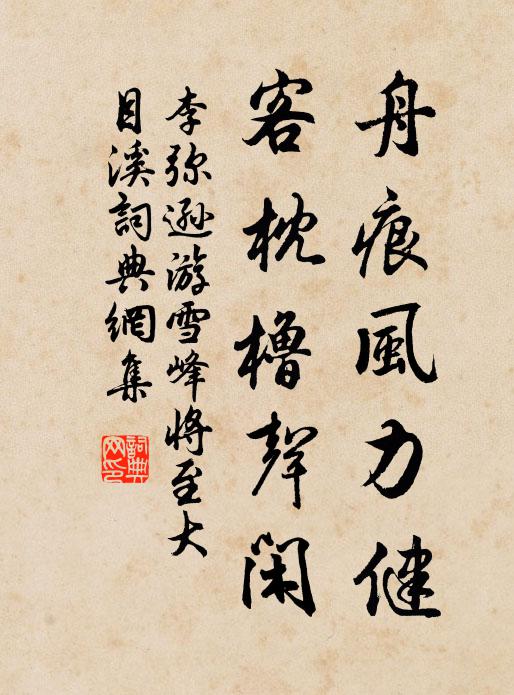 舟痕風力健
客枕櫓聲閑
李弥遜游雪峰將至大
目溪詞典網集
詞典
网印